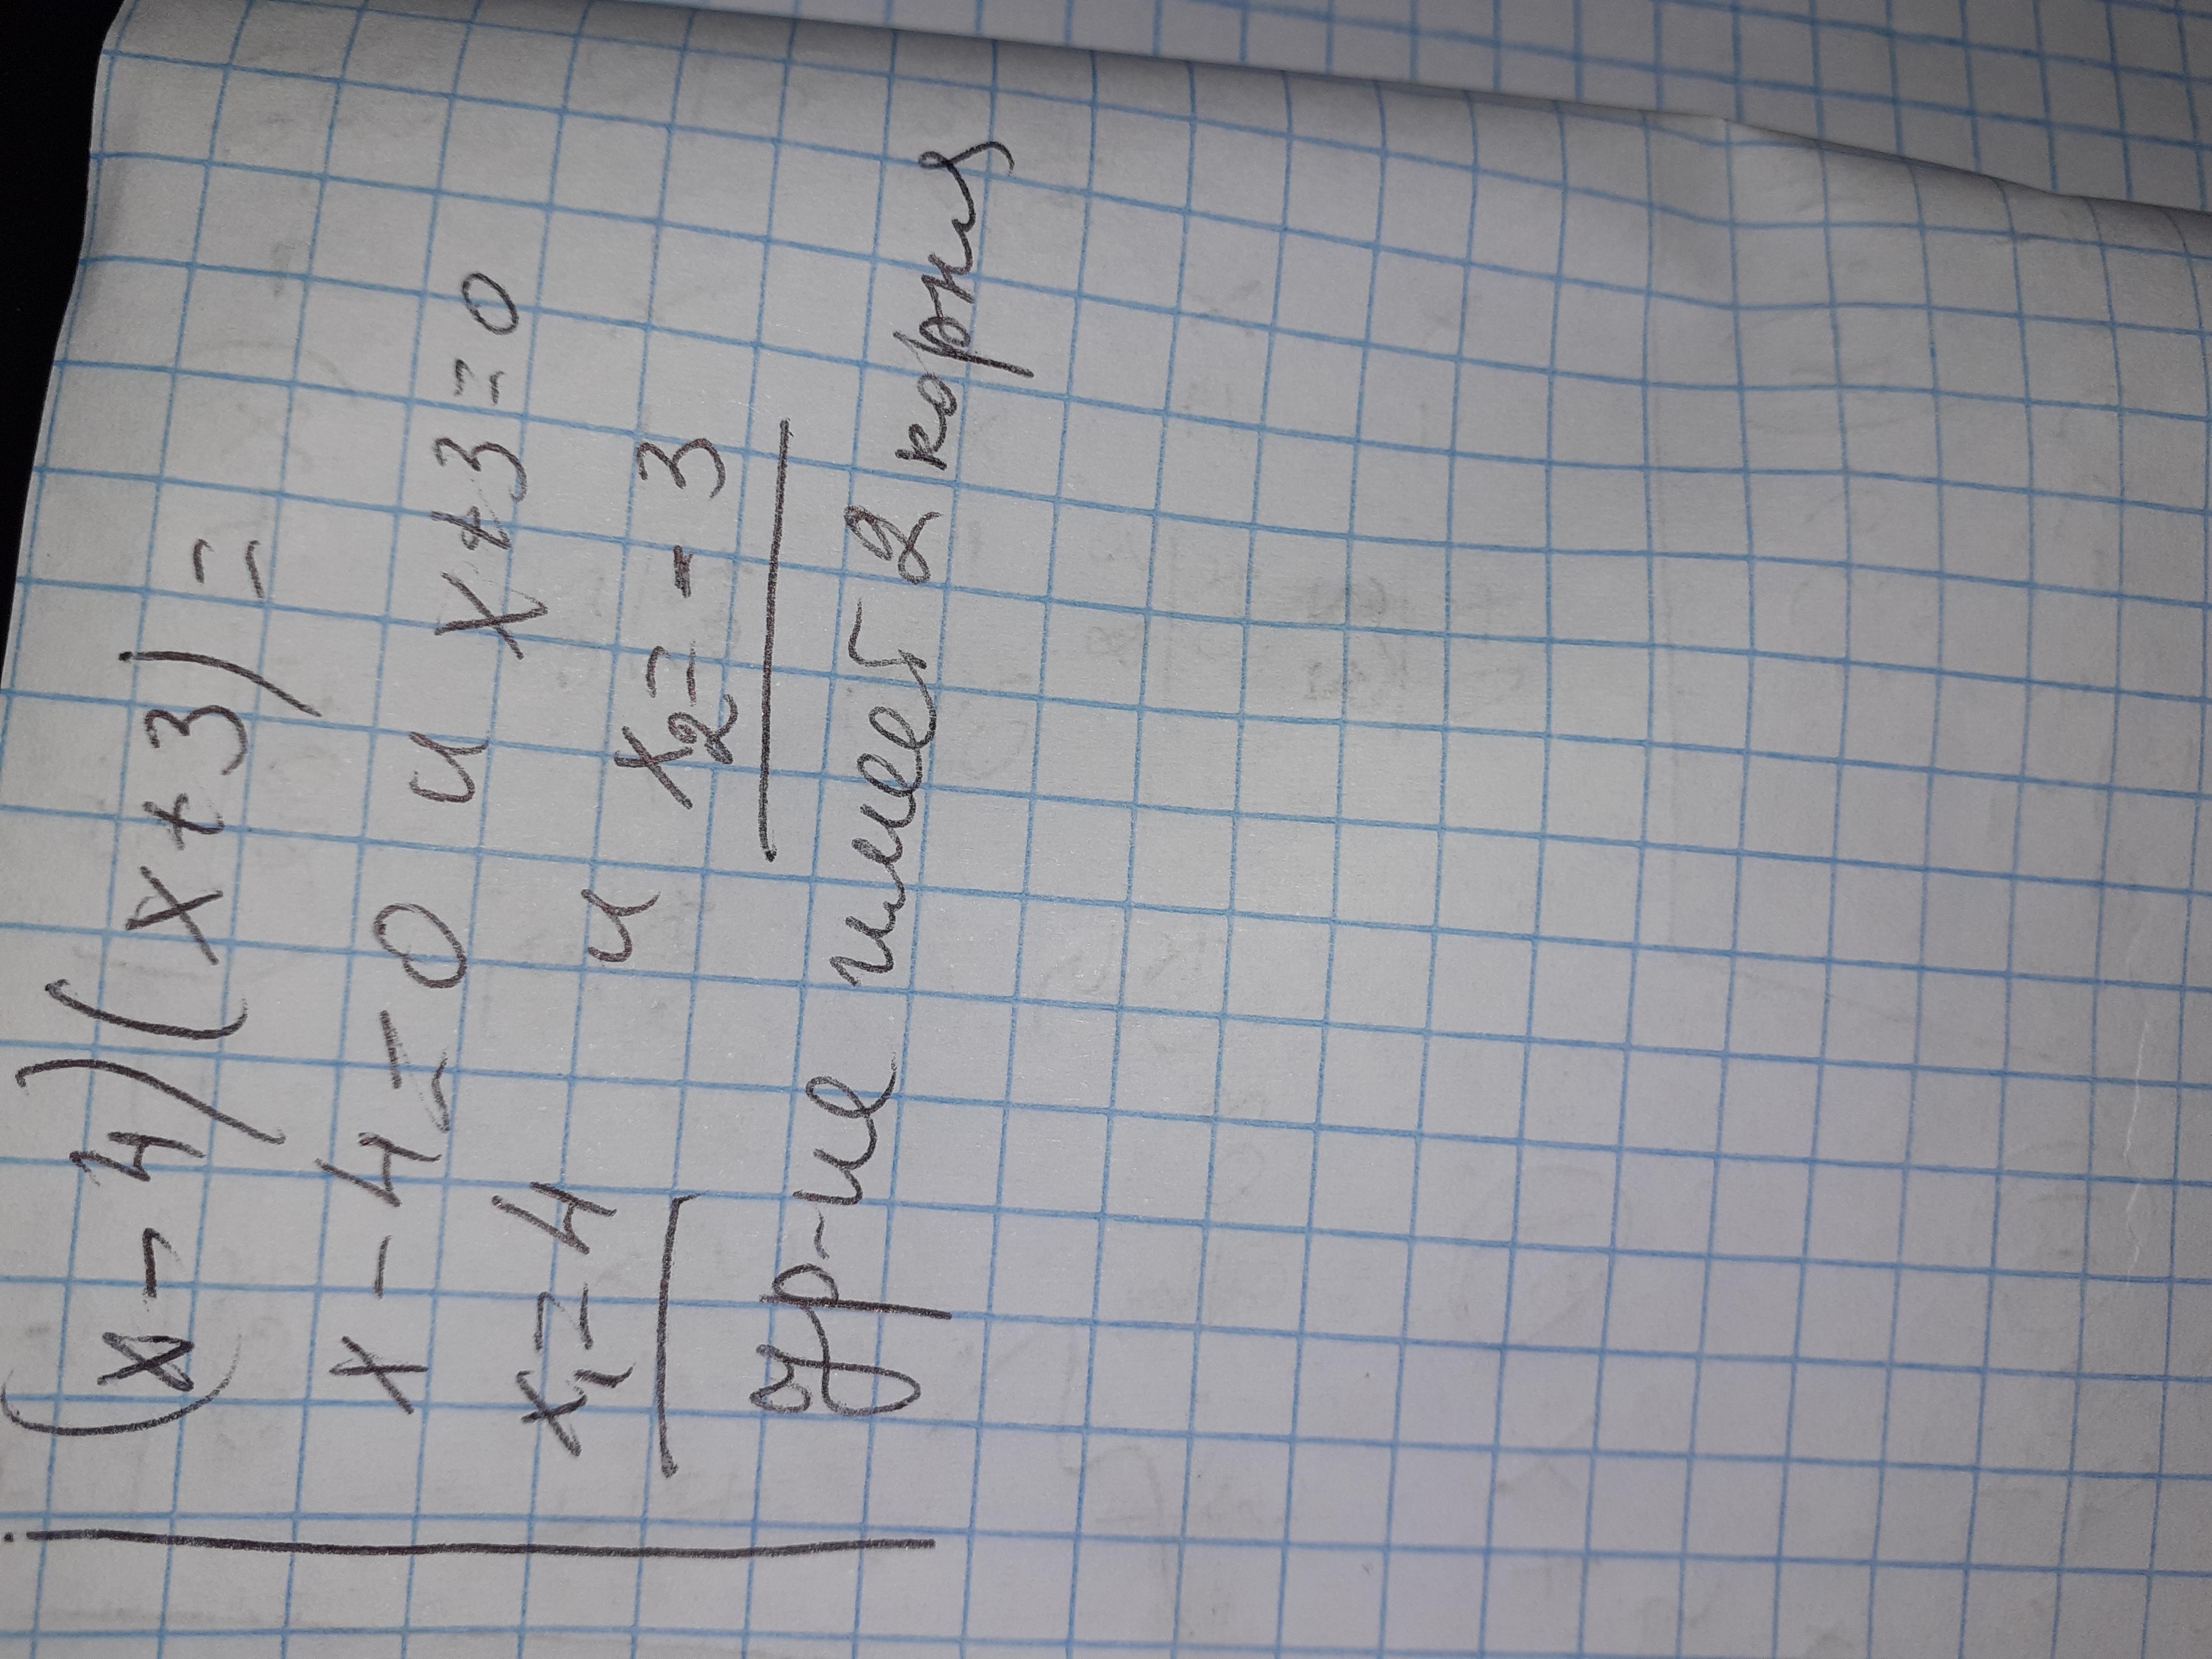 (x-4)(x+3)=
x-4=0 и x+3=0
x₁=4 и x₂=-3
ур-ие имеет 2 корня